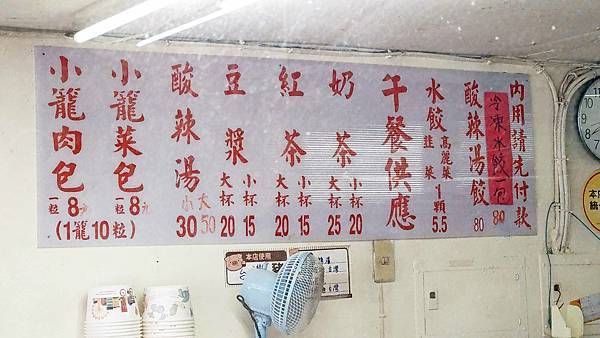 內用請先付款
冷凍水餃一包 80
酸辣湯餃 80
水餃 高麗菜 韭菜 1顆 5.5
午餐供應
奶茶 小杯 20 大杯 25
紅茶 小杯 15 大杯 20
豆漿 小杯 15 大杯 20
酸辣湯 大 50 小 30
小籠菜包 一粒 8元
小籠肉包 一粒 8元
(1籠10粒)
本店使用